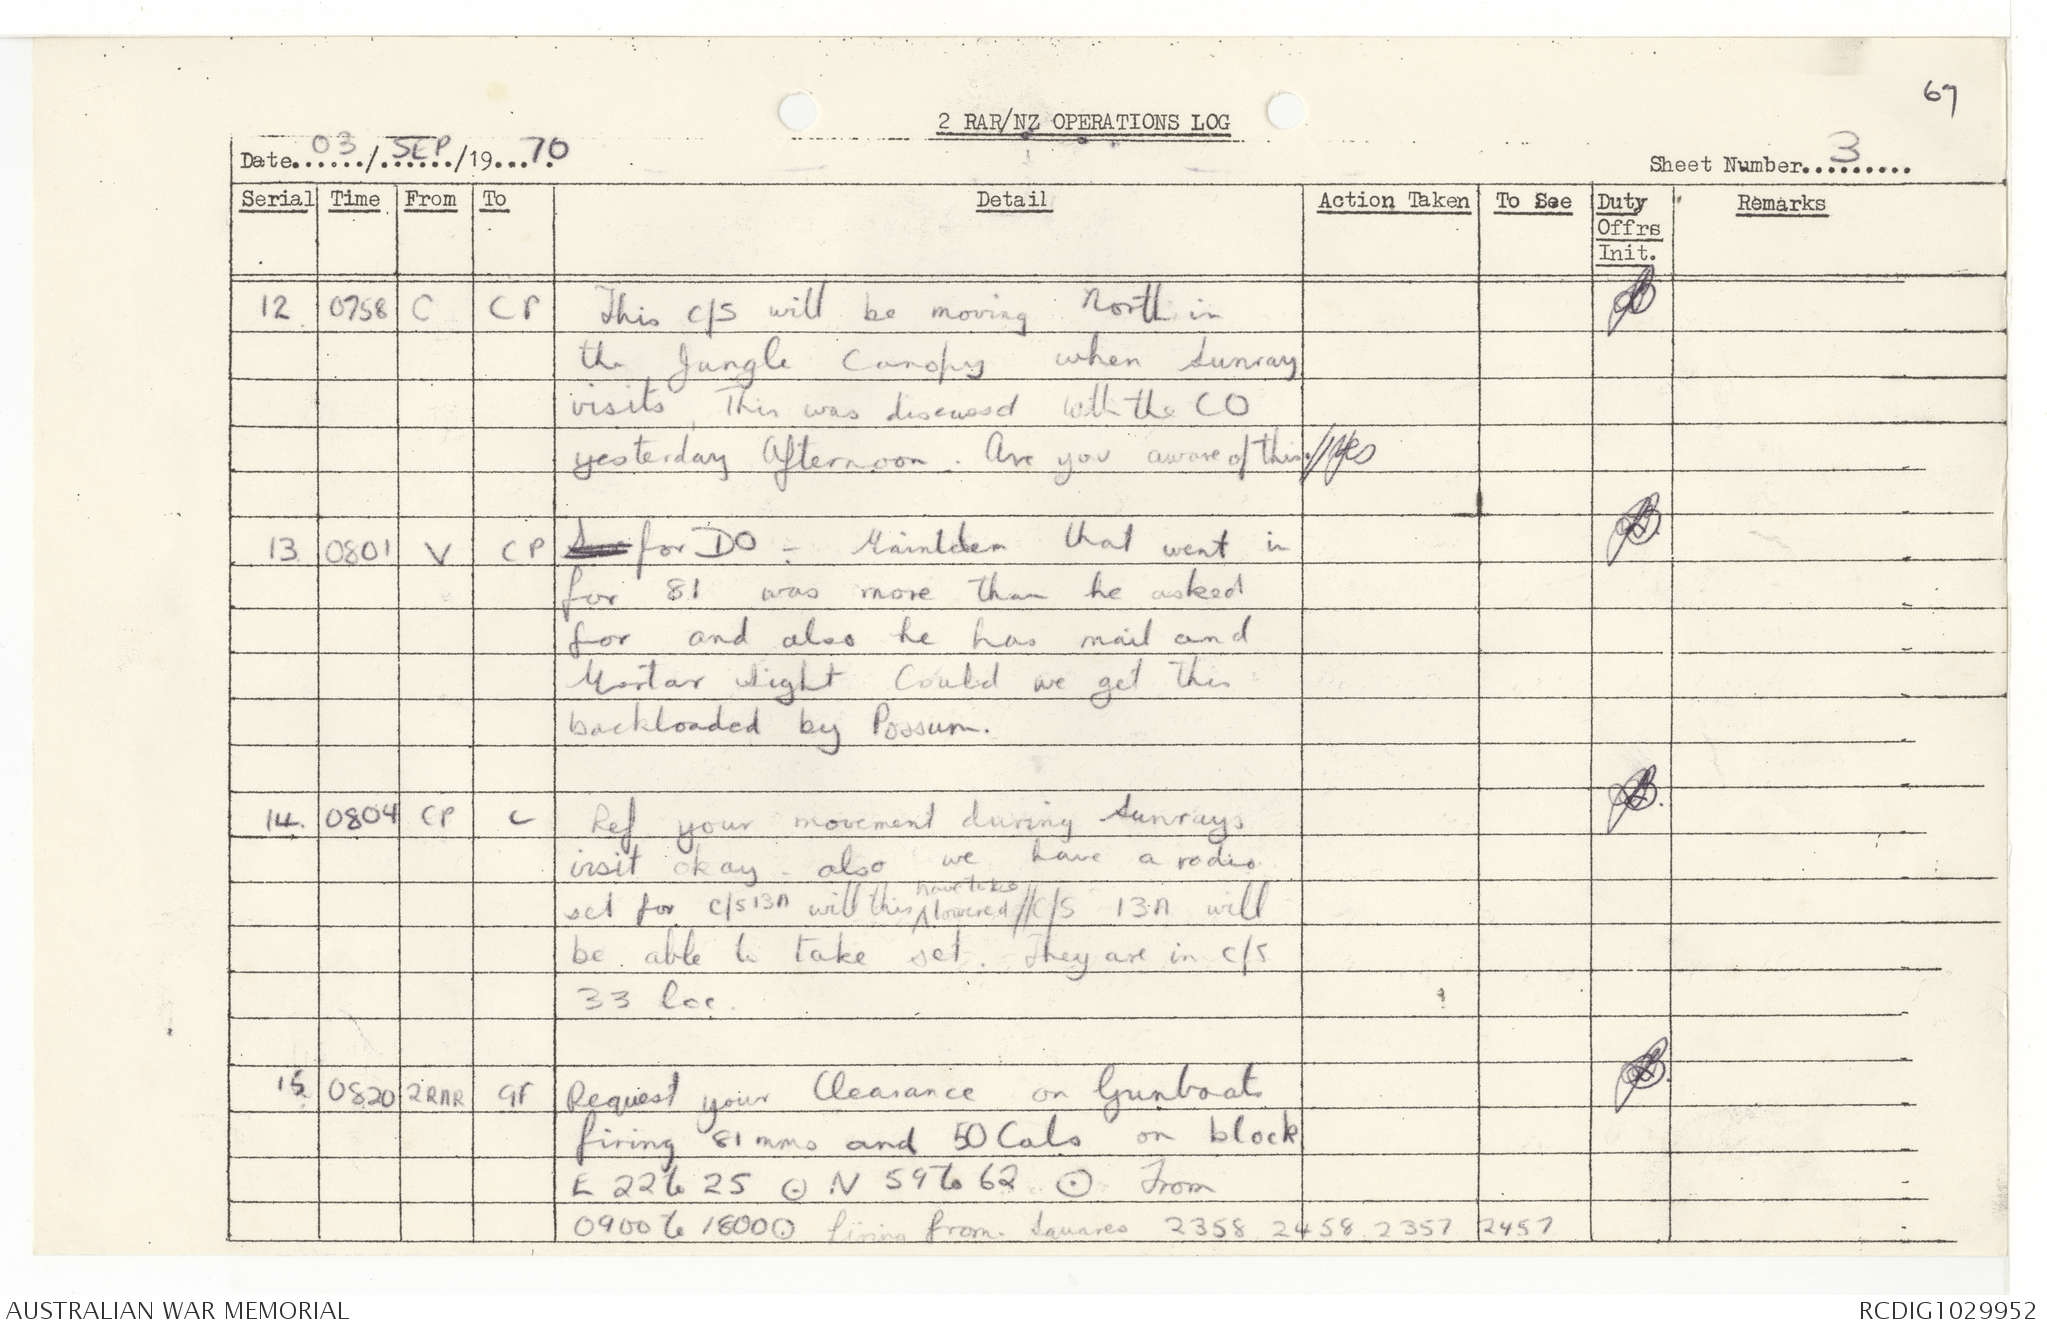 67
2 RAR/NZ OPERATIONS LOG
Date 03/SEP/1970
Sheet Number 3
Serial Time From To Detail Action Taken To See Duty Offrs Init. Remarks
12 0758 C CP This c/s will be moving North in
the Jungle Canopy when Sunray
visits. This was discussed with the CO
yesterday Afternoon. Are you aware of this.//Yes
13 0801 V CP for DO - Maintdem that went in
for 81 was more than he asked
for and also he has mail and
Mortar sight Could we get this
backloaded by Possum.
14. 0804 CP C Ref your movement during Sunrays
visit okay. also we have a radio
set for c/s 13A will this have to be lowered//C/S 13A will
be able to take set. They are in c/s
33 loc.
15 0820 2RAR Request your Clearance on Gunboats
firing 81 mms and 50 Cals on block
E 22 to 25 ⊙ N 59 to 62 ⊙ From
0900 to 1800 ⊙ firing from squares 2358 2458 2357 2457
AUSTRALIAN WAR MEMORIAL
RCDIG1029952